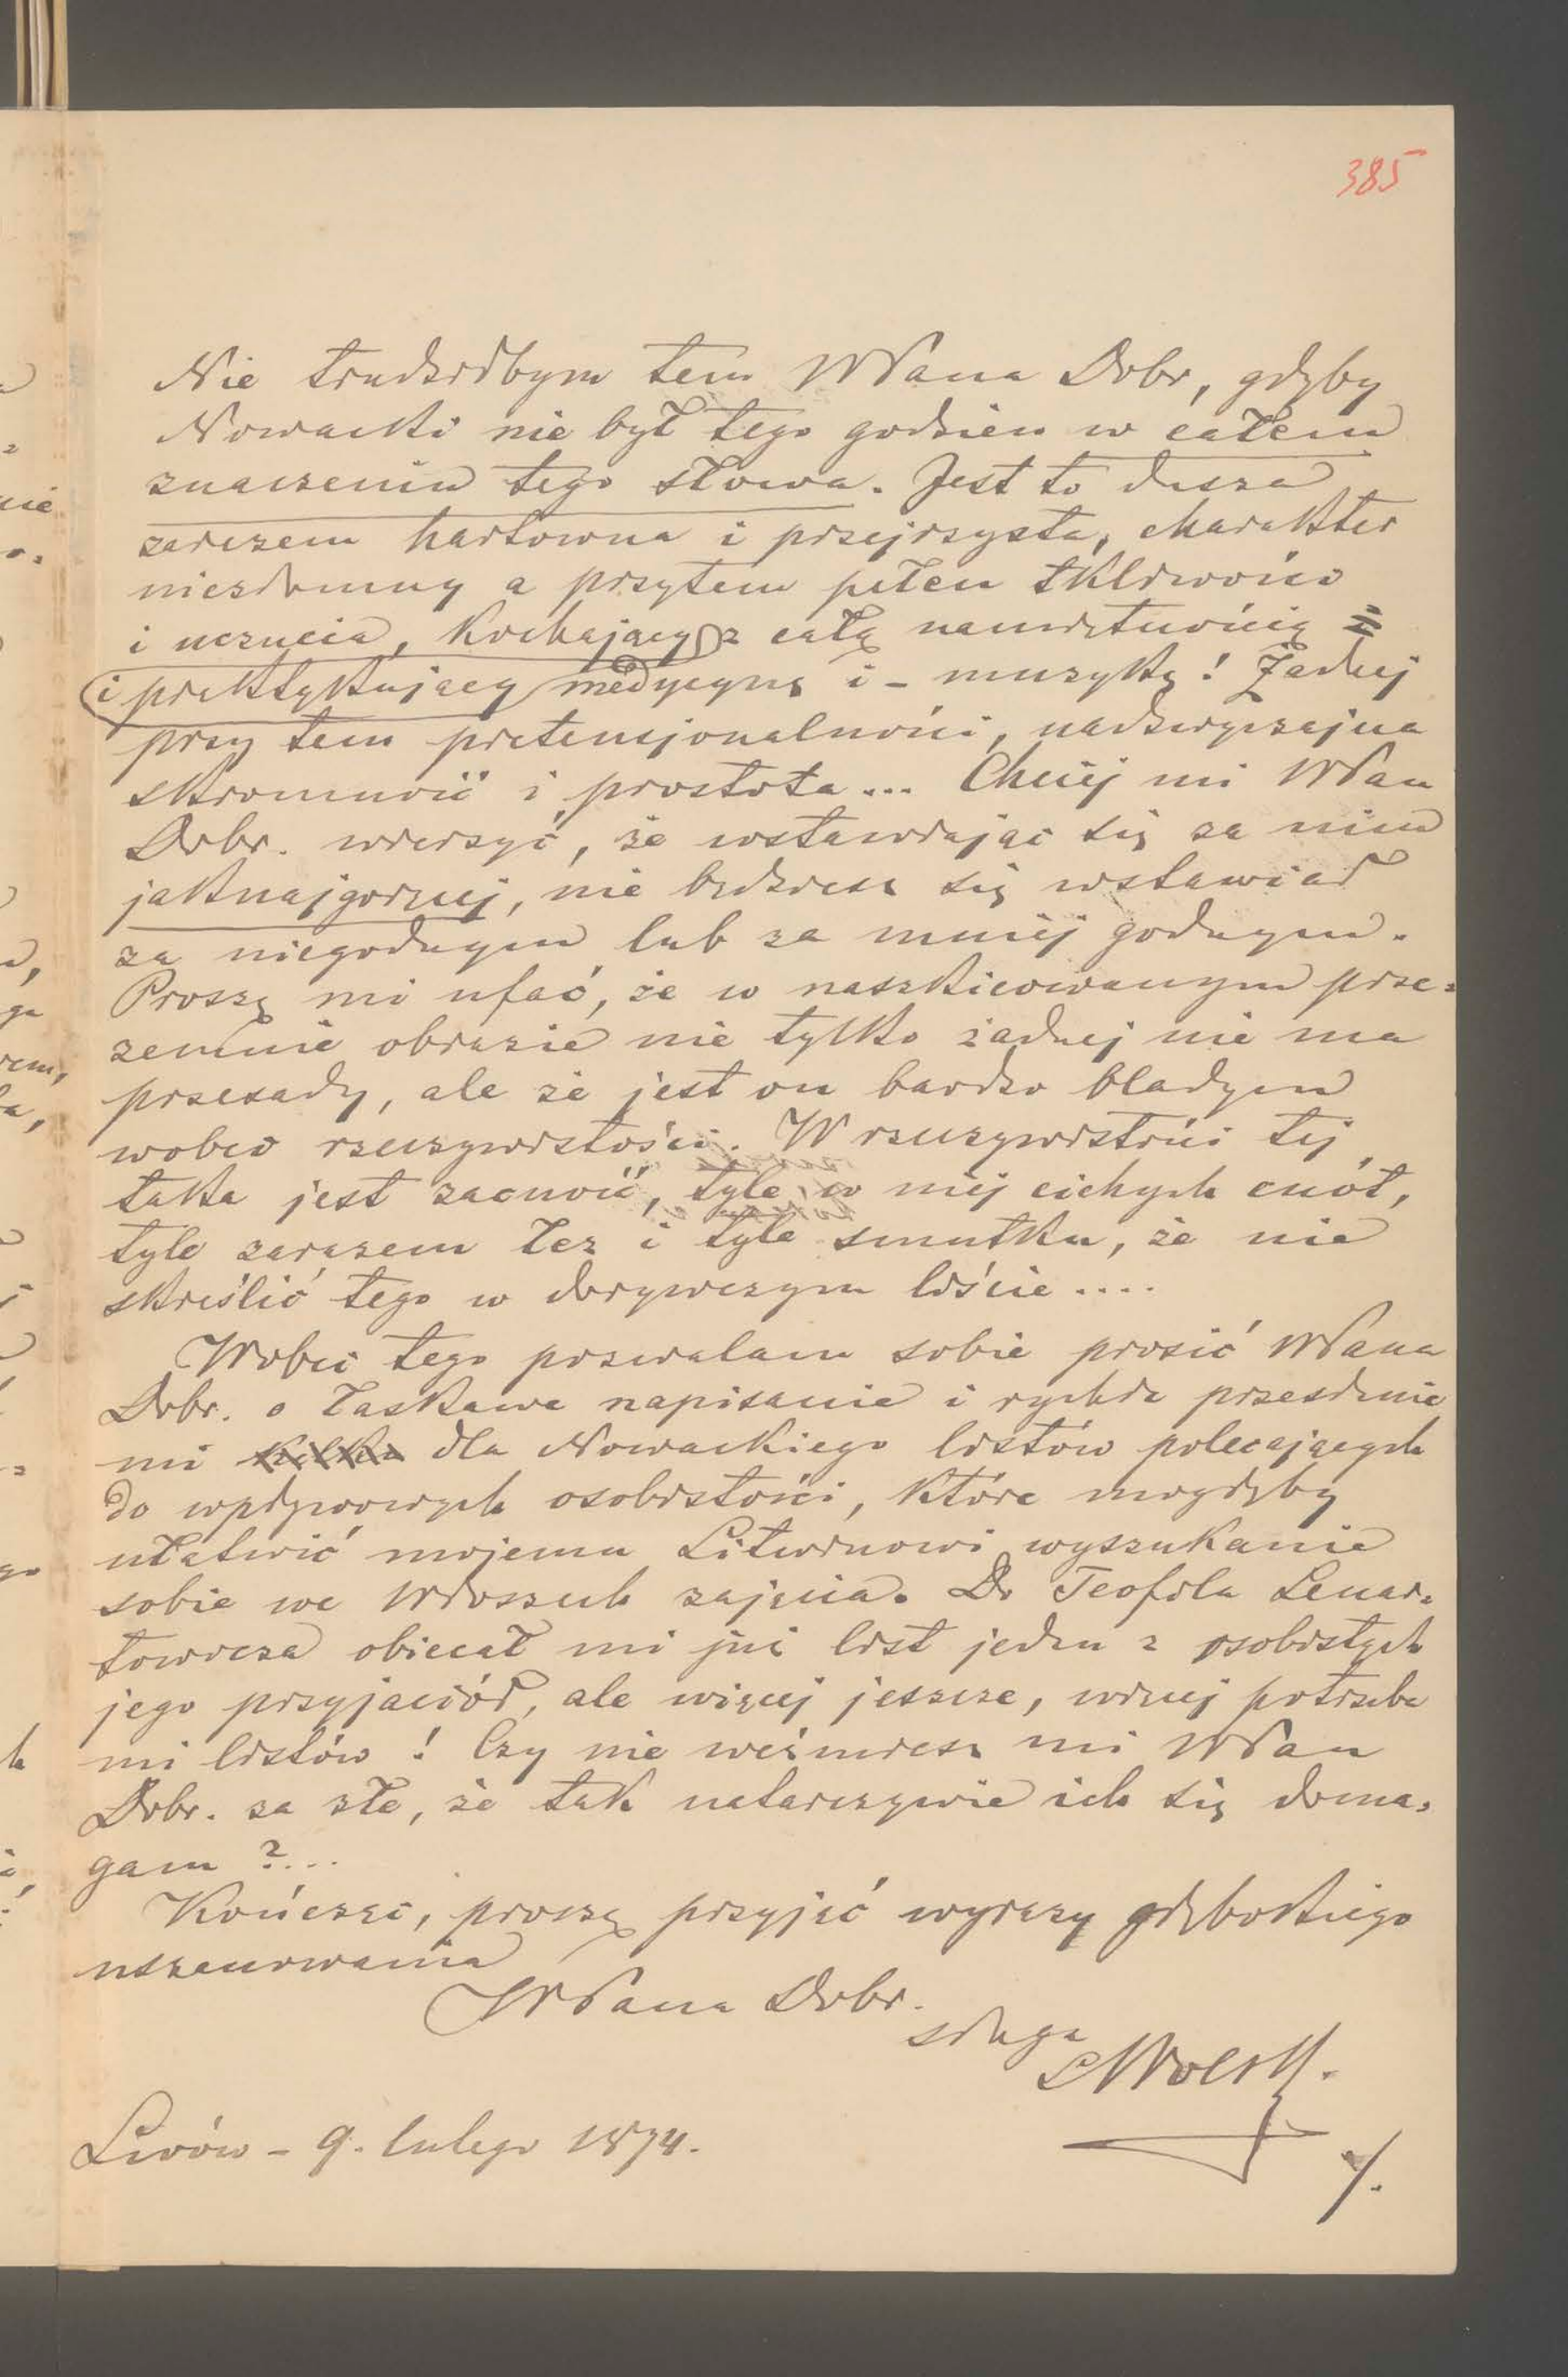 385
Nie trudziłbym tem WPana Dobr, gdyby
Nowacki nie był tego godzien w całem
znaczeniu tego słowa. Jest to dusza
zarazem hartowna i przejrzysta, charakter
niezłomny a przytem pełen tkliwości
i uczucia, kochający z całą namiętnością =
i praktykujący medycynę i – muzykę! Żadnej
przy tem pretensjonalności, nadzwyczajna
skromność i prostota... Chciej mi WPan
Dobr. wierzyć, że wstawiając się za nim
jaknajgoręcej, nie będziesz się wstawiał
za niegodnym lub za mniej godnym.
Proszę mi ufać, że w naszkicowanym prze=
zemnie obrazie nie tylko żadnej nie ma
przesady, ale że jest on bardzo bladym
wobec rzeczywistości. W rzeczywistości tej
taka jest zacność, tyle w niej cichych cnót,
tyle zarazem łez i tyle smutku, że nie
skreślić tego w dorywczym liście....
Wobec tego pozwalam sobie prosić WPana
Dobr. o łaskawe napisanie i rychłe przesłanie
mi kilku dla Nowackiego listów polecających
do wpływowych osobistości, które mogłyby
ułatwić mojemu Litwinowi wyszukanie
sobie we Włoszech zajęcia. Do Teofila Lenar=
towicza obiecał mi już list jeden z osobistych
jego przyjaciół, ale więcej jeszcze, więcej potrzeba
mi listów! Czy nie weźmiesz mi WPan
Dobr. za złe, że tak natarczywie ich się doma=
gam?...
Kończąc, proszę przyjąć wyrazy głębokiego
uszanowania
WPana Dobr.
sługa
Lwów – 9. lutego 1874.